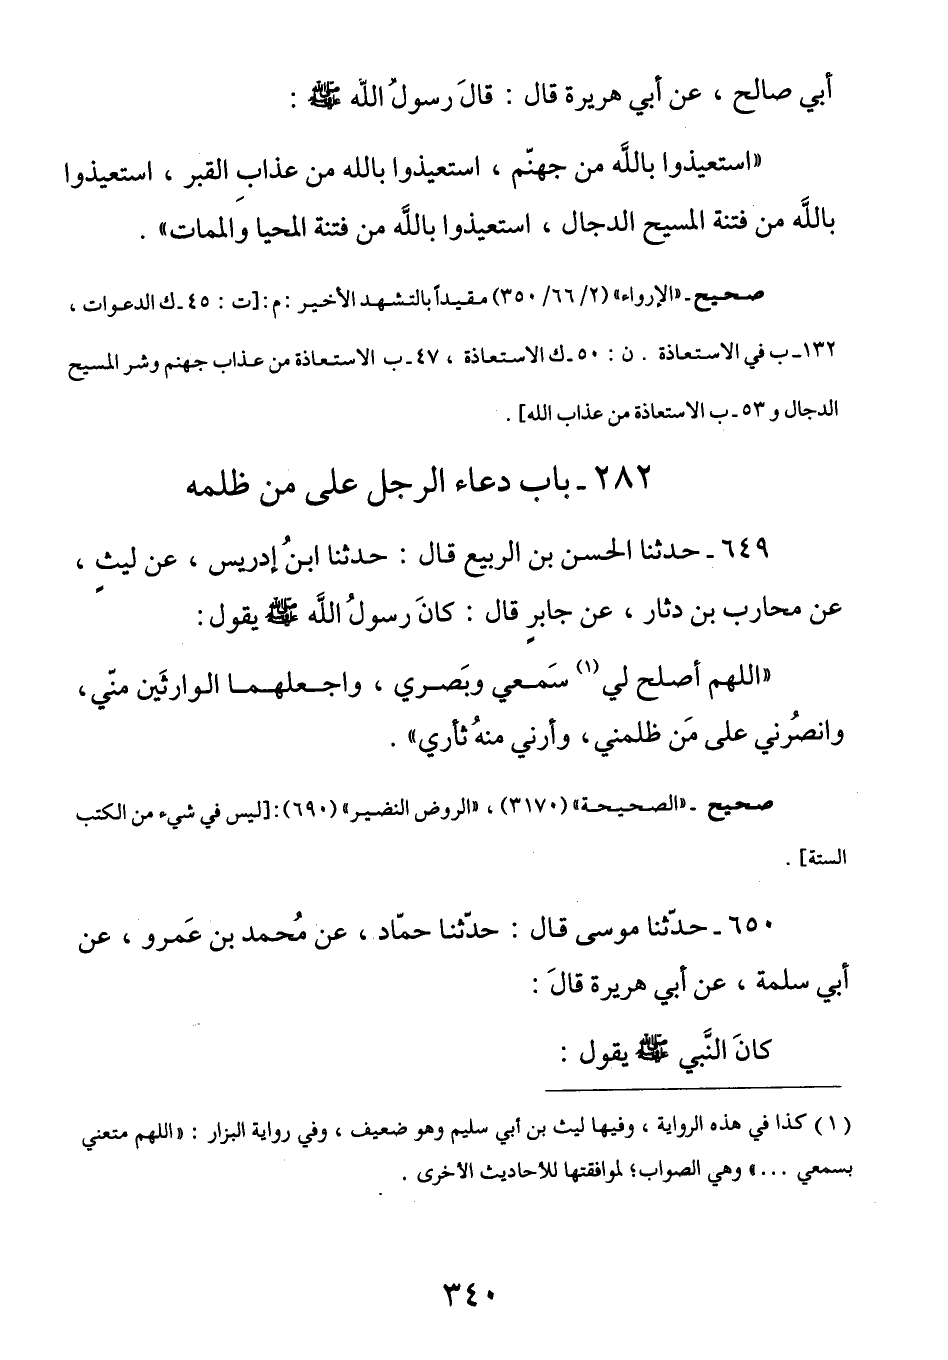 أبي صالح ، عن أبي هريرة قال : قالَ رسولُ اللّه ﷺ :
«استعيذوا باللَّه من جهنّم ، استعيذوا بالله من عذابِ القبر ، استعيذوا
باللَّه من فتنة المسيح الدجال ، استعيذوا باللَّه من فتنة المحيا والممات» .
صحيح ـ «الإرواء» (٢/ ٦٦/ ٣٥٠) مقيداً بالتشهد الأخير : م : [ت : ٤٥ـ ك الدعوات ،
١٣٢ـ ب في الاستعاذة . ن : ٥٠ـ ك الاستعاذة ، ٤٧ـ ب الاستعاذة من عذاب جهنم وشر المسيح
الدجال و ٥٣ـ ب الاستعاذة من عذاب الله] .
٢٨٢ ـ باب دعاء الرجل على من ظلمه
٦٤٩ ـ حدثنا الحسن بن الربيع قال : حدثنا ابنُ إدريس ، عن ليثٍ ،
عن محارب بن دثار ، عن جابرٍ قال : كانَ رسولُ اللَّه ﷺ يقول :
«اللهم أصلح لي(١) سَمعي وبَصري ، واجعلهما الوارثَين منّي ،
وانصُرني على مَن ظلمني ، وأرني منهُ ثأري» .
صحيح ـ «الصحيحة» (٣١٧٠) ، «الروض النضير» (٦٩٠) : [ليس في شيء من الكتب
الستة] .
٦٥٠ ـ حدّثنا موسى قال : حدّثنا حمّاد ، عن مُحمد بن عَمرو ، عن
أبي سلمة ، عن أبي هريرة قالَ :
كانَ النَّبي ﷺ يقول :
(١) كذا في هذه الرواية ، وفيها ليث بن أبي سليم وهو ضعيف ، وفي رواية البزار : «اللهم متعني
بسمعي ...» وهي الصواب؛ لموافقتها للأحاديث الأخرى .
٣٤٠